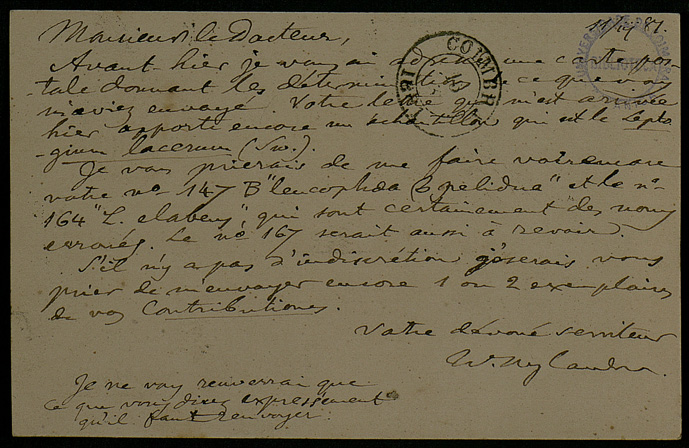 Monsieur le Docteur,
Avant hier je vous ai adressé une carte pos-
tale donnant les déterminations de ce que vous
m'aviez envoyé. Votre lettre qui m'est arrivée
hier apporte encore un échantillon qui est le Lepto-
gium lacerum (Sw.).
Je vous prierais de me faire voir encore
votre no 147 B "leucophaea β pelidna" et le no
164 "L. elabens", qui sont certainement des noms
erronés. Le no 167 serait aussi à revoir.
S'il n'y a pas d'indiscrétion j'oserais vous
prier de m'envoyer encore 1 ou 2 exemplaires
de vos Contributiones.
Votre dévoué serviteur
W. Nylander.
Je ne vous renverrai que
ce que vous direz expressement
qu'il faut renvoyer.
COIMBRA